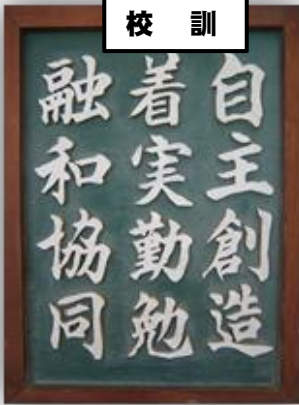 校 訓
自主創造
着実勤勉
融和協同